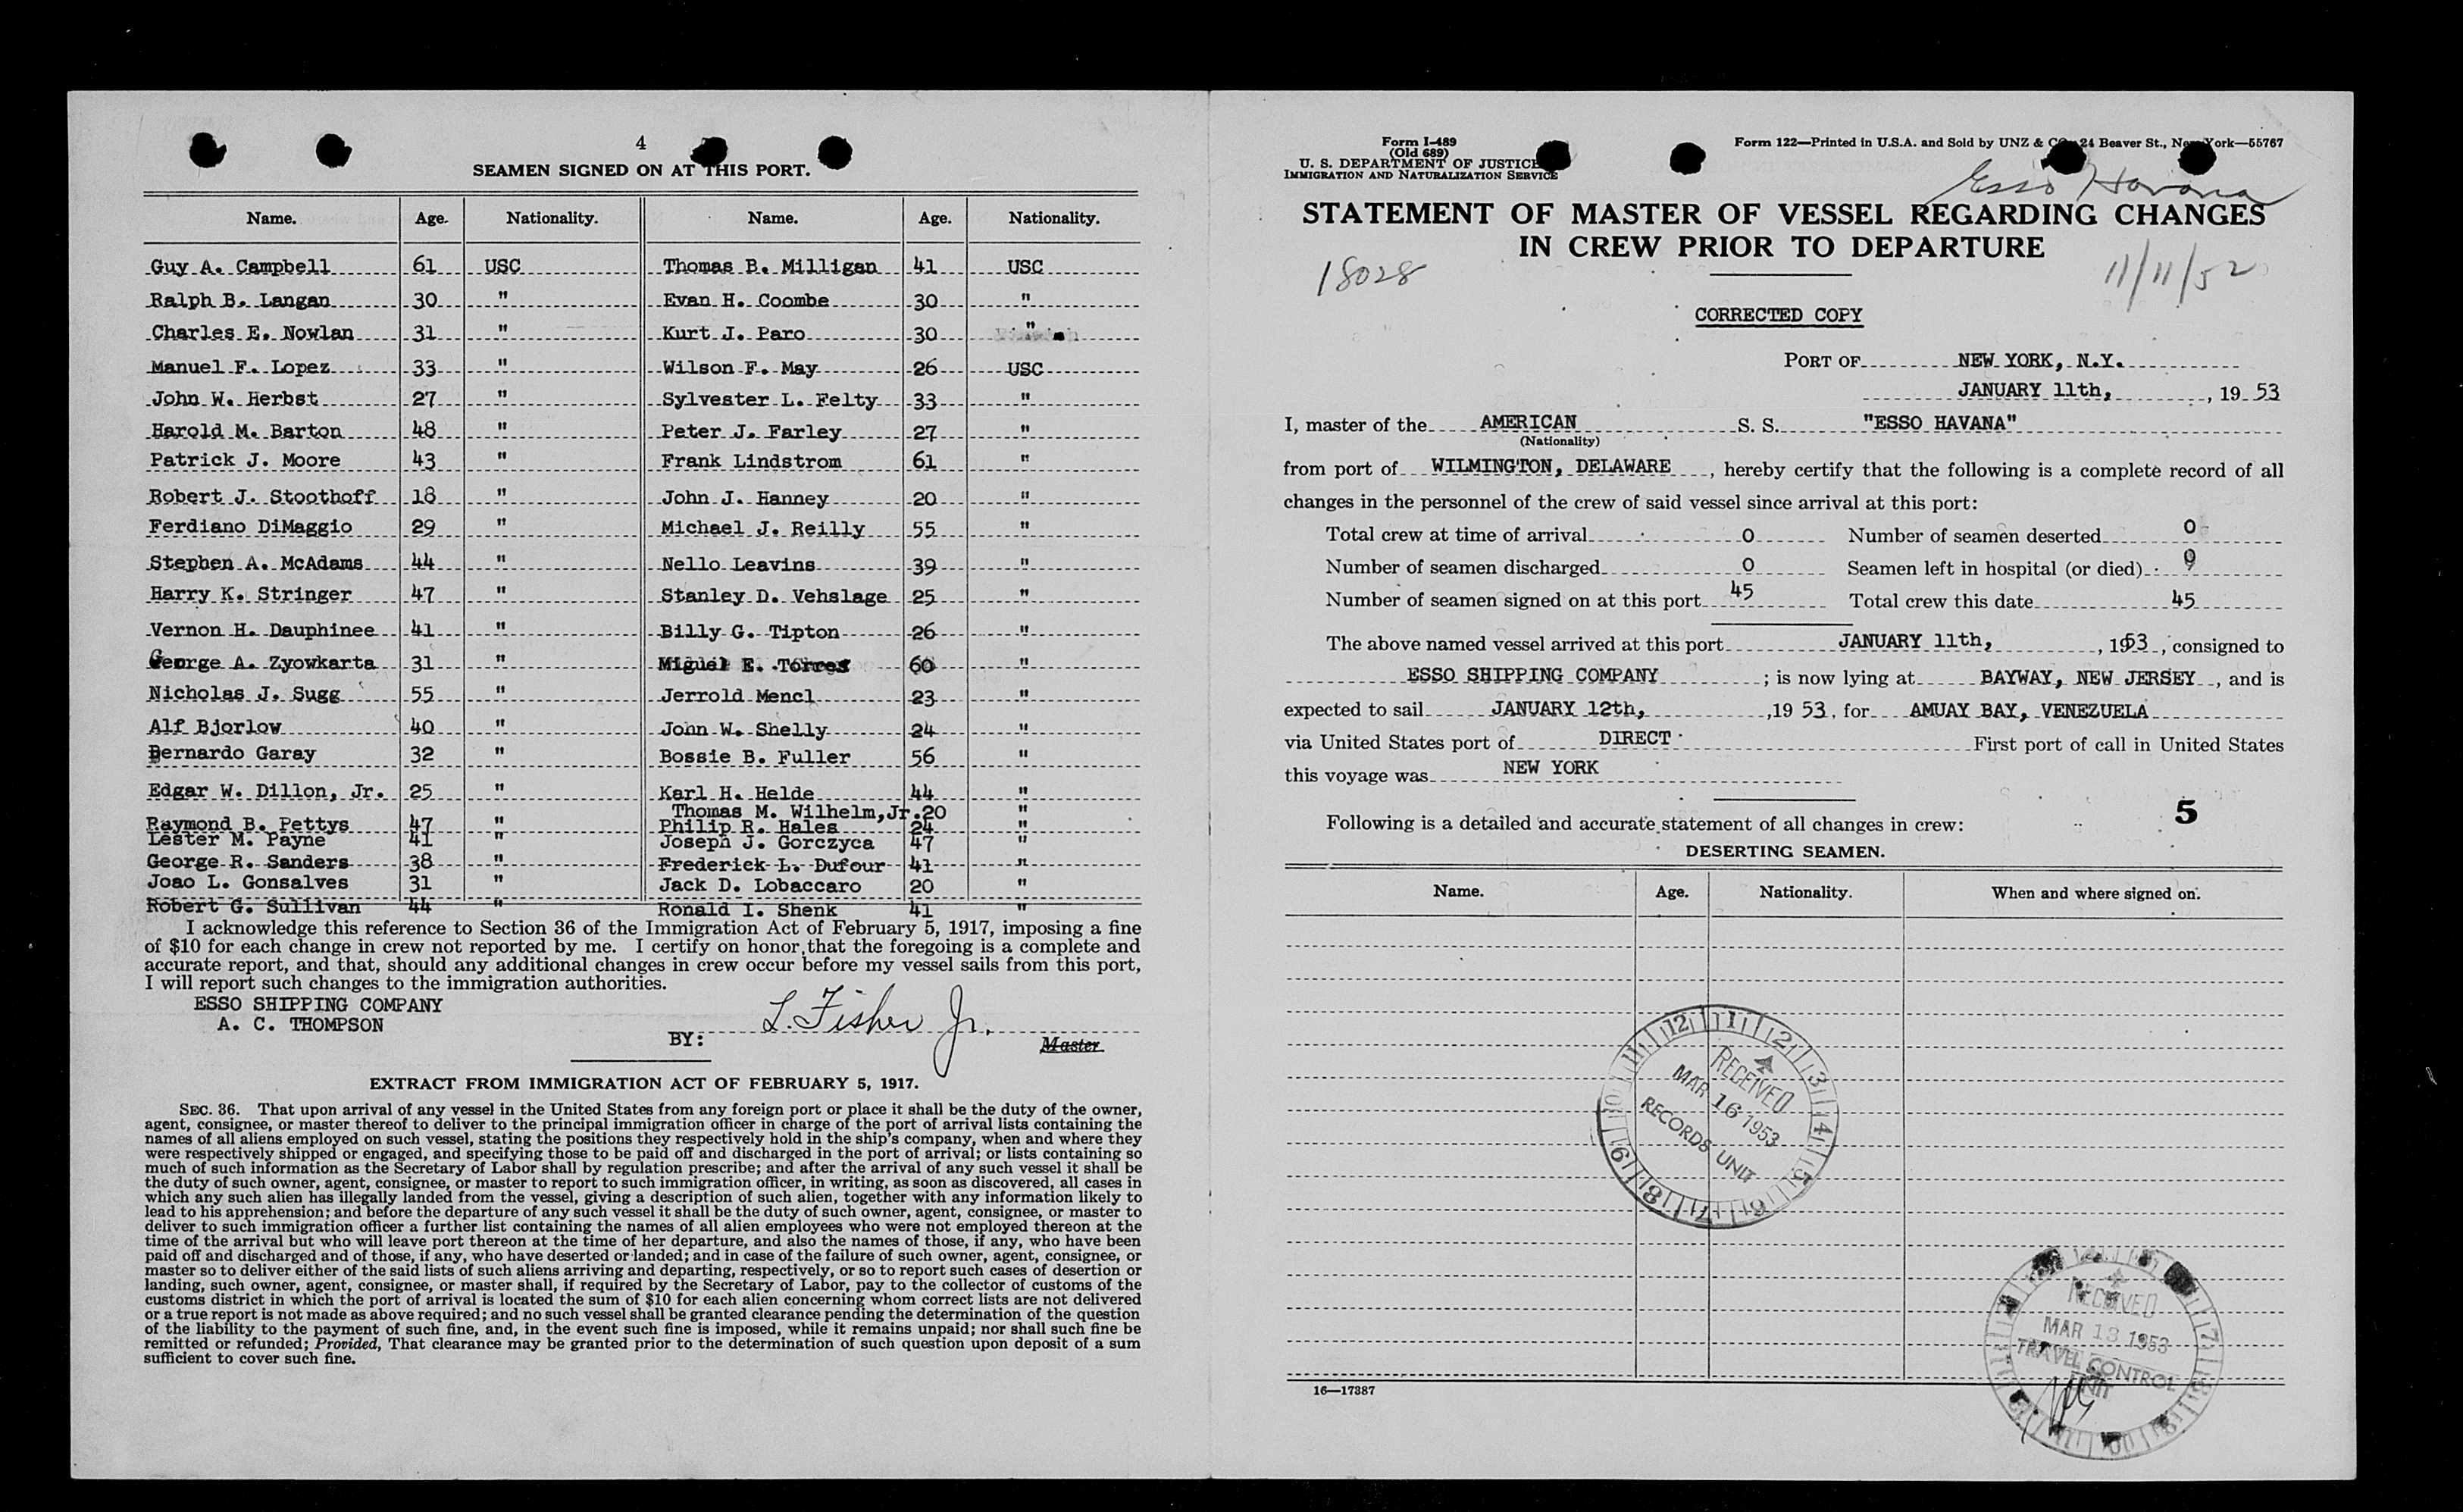 4
SEAMEN SIGNED ON AT THIS PORT.
Name. Age. Nationality. Name. Age. Nationality.
Guy A. Campbell 61 USC Thomas B. Milligan 41 USC
Ralph B. Langan 30 " Evan H. Coombe 30 "
Charles E. Nowlan 31 " Kurt J. Paro 30 "
Manuel F. Lopez 33 " Wilson F. May 26 USC
John W. Herbst 27 " Sylvester L. Felty 33 "
Harold M. Barton 48 " Peter J. Farley 27 "
Patrick J. Moore 43 " Frank Lindstrom 61 "
Robert J. Stoothoff 18 " John J. Hanney 20 "
Ferdiano DiMaggio 29 " Michael J. Reilly 55 "
Stephen A. McAdams 44 " Nello Leavins 39 "
Harry K. Stringer 47 " Stanley D. Vehslage 25 "
Vernon H. Dauphinee 41 " Billy G. Tipton 26 "
George A. Zyowkarta 31 " Miguel E. Torres 60 "
Nicholas J. Sugg 55 " Jerrold Mencl 23 "
Alf Bjorlow 40 " John W. Shelly 24 "
Bernardo Garay 32 " Bossie B. Fuller 56 "
Edgar W. Dillon, Jr. 25 " Karl H. Helde 44 "
Thomas M. Wilhelm, Jr. 20 "
Raymond B. Pettys 47 " Philip R. Hales 24 "
Lester M. Payne 41 " Joseph J. Gorczyca 47 "
George R. Sanders 38 " Frederick L. Dufour 41 "
Joao L. Gonsalves 31 " Jack D. Lobaccaro 20 "
Robert G. Sullivan 44 " Ronald I. Shenk 41 "
I acknowledge this reference to Section 36 of the Immigration Act of February 5, 1917, imposing a fine
of $10 for each change in crew not reported by me. I certify on honor that the foregoing is a complete and
accurate report, and that, should any additional changes in crew occur before my vessel sails from this port,
I will report such changes to the immigration authorities.
ESSO SHIPPING COMPANY
A. C. THOMPSON
BY: L. Fisher Jr.
Master
EXTRACT FROM IMMIGRATION ACT OF FEBRUARY 5, 1917.
SEC. 36. That upon arrival of any vessel in the United States from any foreign port or place it shall be the duty of the owner,
agent, consignee, or master thereof to deliver to the principal immigration officer in charge of the port of arrival lists containing the
names of all aliens employed on such vessel, stating the positions they respectively hold in the ship's company, when and where they
were respectively shipped or engaged, and specifying those to be paid off and discharged in the port of arrival; or lists containing so
much of such information as the Secretary of Labor shall by regulation prescribe; and after the arrival of any such vessel it shall be
the duty of such owner, agent, consignee, or master to report to such immigration officer, in writing, as soon as discovered, all cases in
which any such alien has illegally landed from the vessel, giving a description of such alien, together with any information likely to
lead to his apprehension; and before the departure of any such vessel it shall be the duty of such owner, agent, consignee, or master to
deliver to such immigration officer a further list containing the names of all alien employees who were not employed thereon at the
time of the arrival but who will leave port thereon at the time of her departure, and also the names of those, if any, who have been
paid off and discharged and of those, if any, who have deserted or landed; and in case of the failure of such owner, agent, consignee, or
master so to deliver either of the said lists of such aliens arriving and departing, respectively, or so to report such cases of desertion or
landing, such owner, agent, consignee, or master shall, if required by the Secretary of Labor, pay to the collector of customs of the
customs district in which the port of arrival is located the sum of $10 for each alien concerning whom correct lists are not delivered
or a true report is not made as above required; and no such vessel shall be granted clearance pending the determination of the question
of the liability to the payment of such fine, and, in the event such fine is imposed, while it remains unpaid; nor shall such fine be
remitted or refunded; Provided, That clearance may be granted prior to the determination of such question upon deposit of a sum
sufficient to cover such fine.
Form I-489
(Old 689)
U. S. DEPARTMENT OF JUSTICE
IMMIGRATION AND NATURALIZATION SERVICE
Form 122—Printed in U.S.A. and Sold by UNZ & CO., 24 Beaver St., New York—55767
Esso Havana
STATEMENT OF MASTER OF VESSEL REGARDING CHANGES
IN CREW PRIOR TO DEPARTURE
18028
11/11/52
CORRECTED COPY
PORT OF NEW YORK, N.Y.
JANUARY 11th, , 19 53
I, master of the AMERICAN S. S. "ESSO HAVANA"
(Nationality)
from port of WILMINGTON, DELAWARE , hereby certify that the following is a complete record of all
changes in the personnel of the crew of said vessel since arrival at this port:
Total crew at time of arrival 0 Number of seamen deserted 0
Number of seamen discharged 0 Seamen left in hospital (or died) 0
Number of seamen signed on at this port 45 Total crew this date 45
The above named vessel arrived at this port JANUARY 11th, , 1953 , consigned to
ESSO SHIPPING COMPANY ; is now lying at BAYWAY, NEW JERSEY , and is
expected to sail JANUARY 12th, ,19 53 , for AMUAY BAY, VENEZUELA
via United States port of DIRECT First port of call in United States
this voyage was NEW YORK
5
Following is a detailed and accurate statement of all changes in crew:
DESERTING SEAMEN.
Name. Age. Nationality. When and where signed on.
12 1 2 3 4 5 6 7 8 9 10 11
RECEIVED
MAR 16 1953
RECORDS UNIT
RECEIVED
MAR 13 1953
TRAVEL CONTROL
UNIT
16—17387